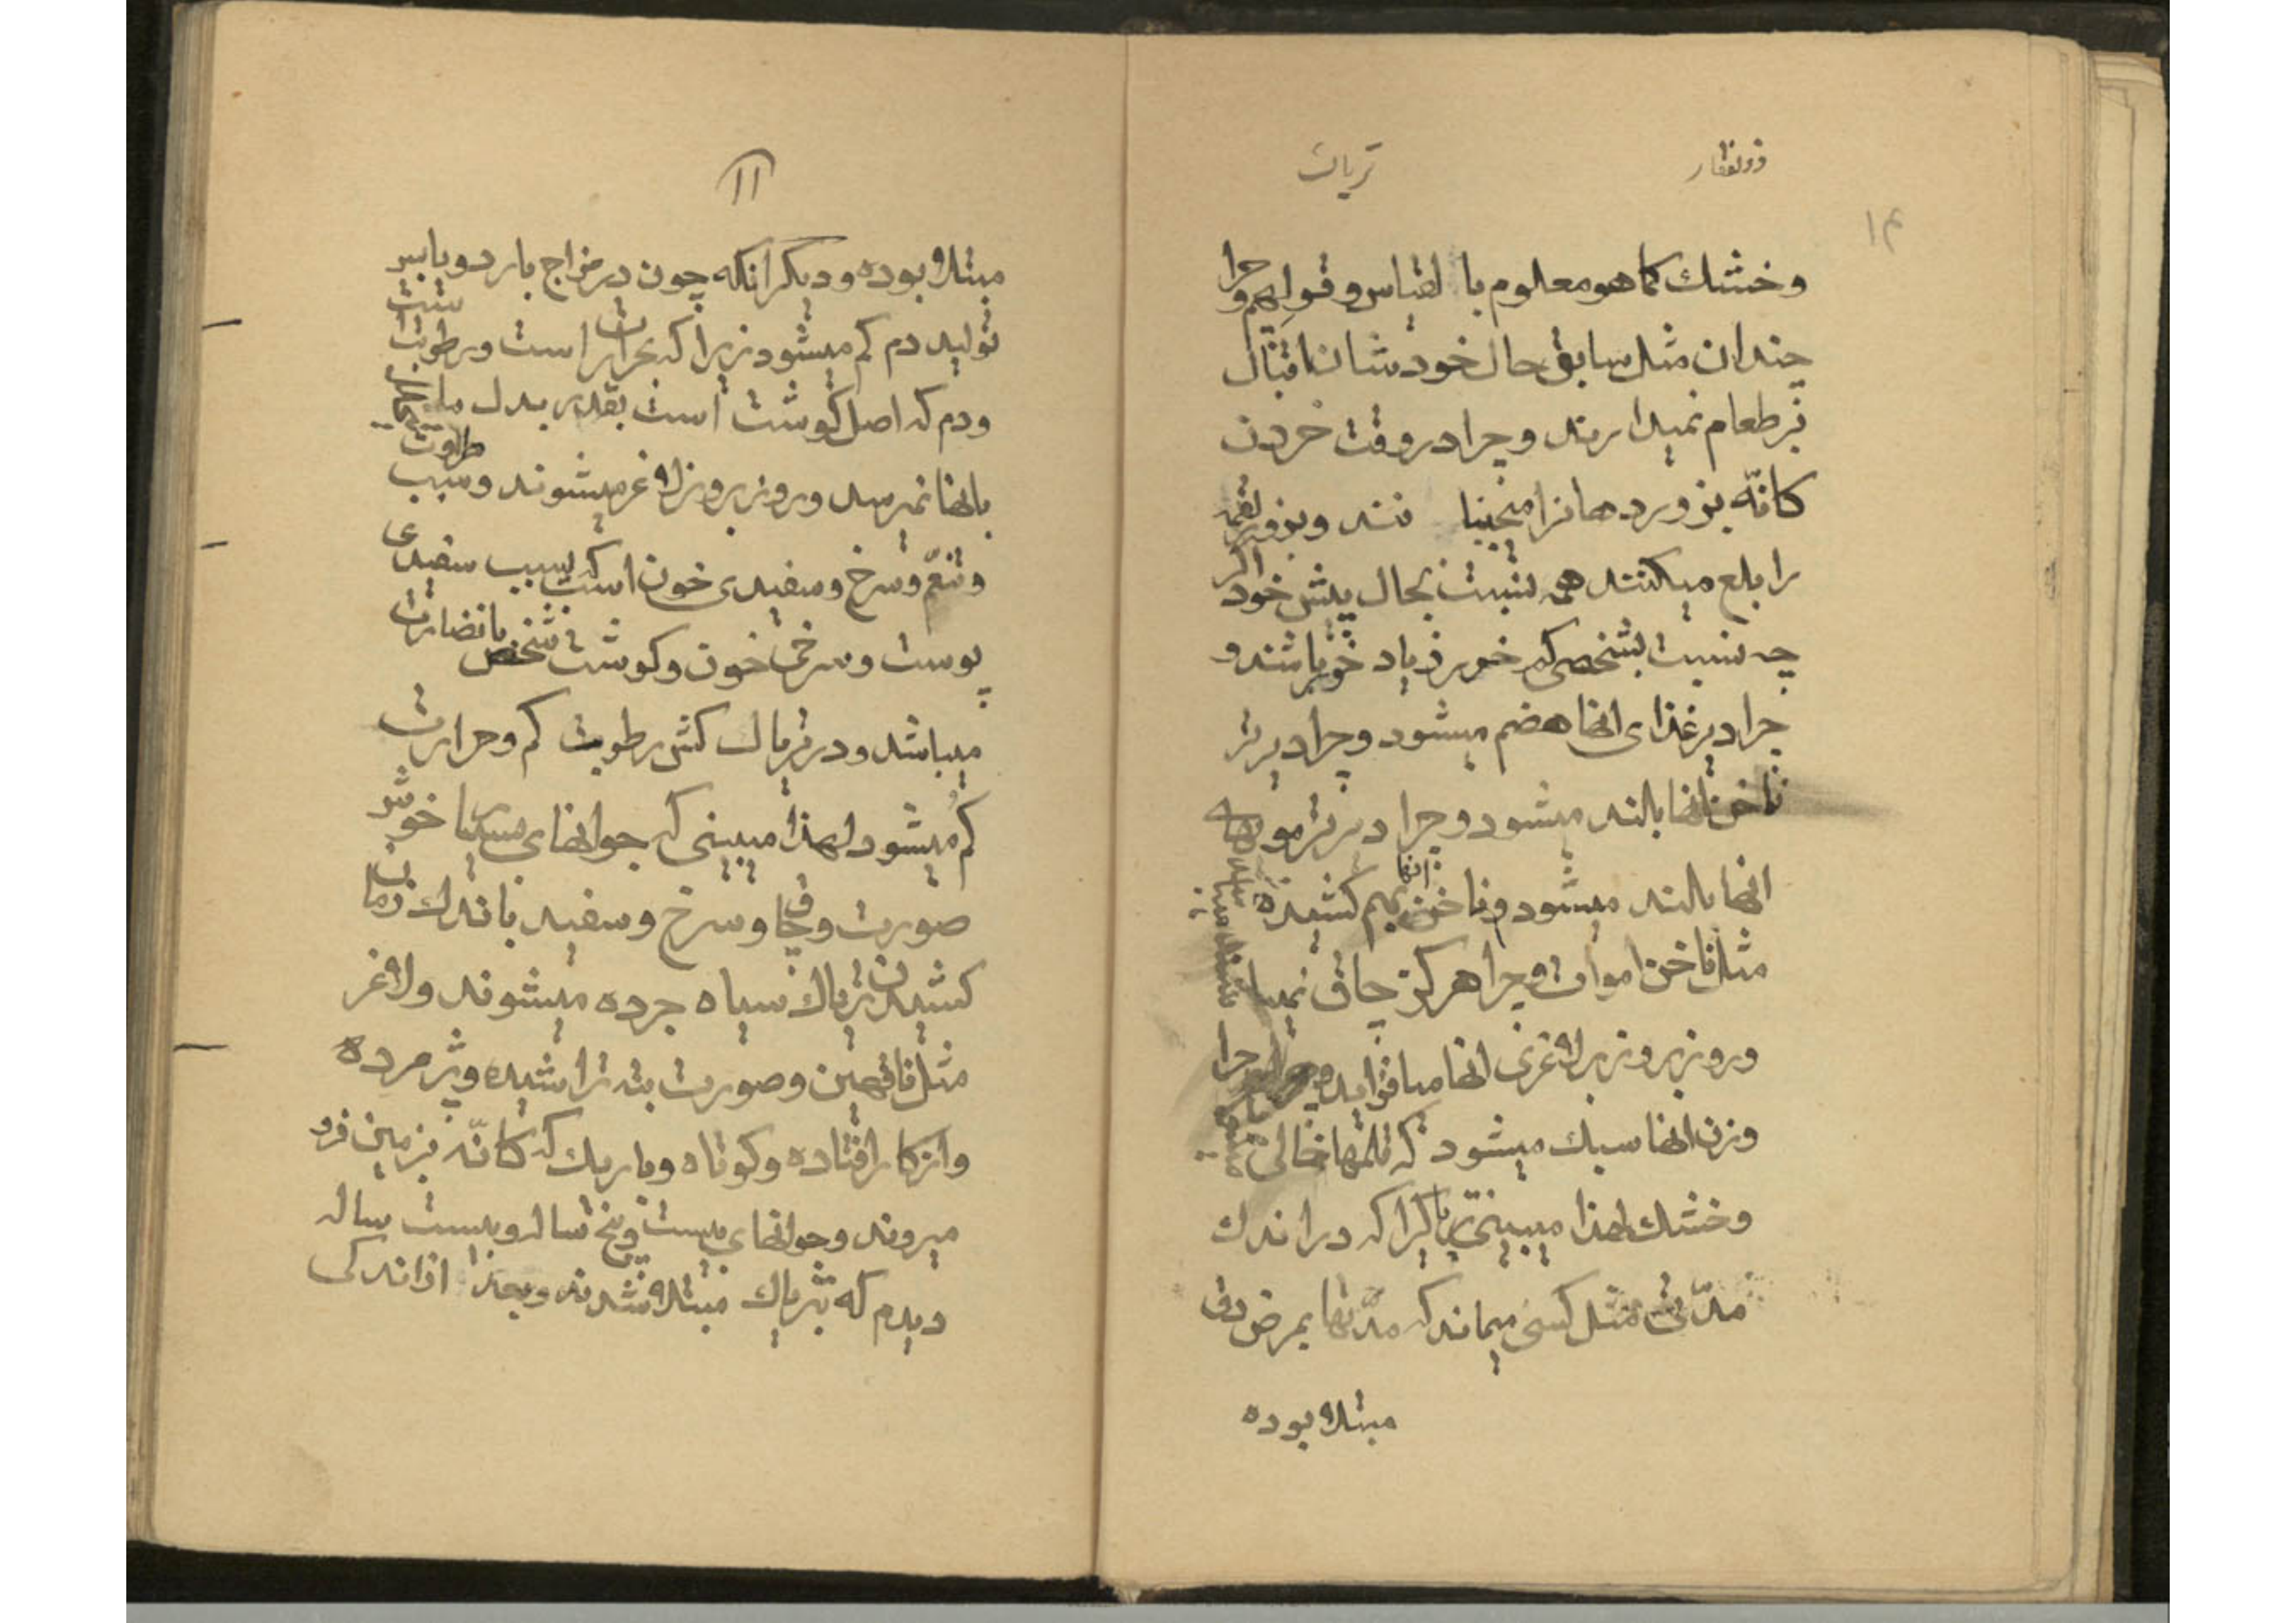 ذوالفقار تریاک
۱۴
وخشک کما هو معلوم با لقیاس و قولهم و چرا
چندان مثل سابق حال خودشان اقبال
بر طعام نمیدارند و چرا در وقت خردن
کانّه بزور دهانرا میجنبا نند و بزور لقمه
را بلع میکنند همه نسبت بحال پیش خود اگر
چه نسبت بشخصی کم خور زیاد خور باشند و
چرا دیر غذای انها هضم میشود و چرا دیرتر
ناخن انها بالند میشود و چرا دیرتر موهای
انها بالند میشود و ناخن انها بهم کشیده
مثل ناخن اموات و چرا هرکز چاق نمیبا
و روز بروز بر لاغری انها میافزاید و چرا
وزن انها سبک میشود که قلمها خالی
وخشک لهذا میبینی تریاکیرا که در اندک
مدّتی مثل کسی میماند که مدّتها بمرض دق
مبتلا بوده
۱۱
مبتلا بوده و دیکر انکه چون در مزاج بارد و یابس
تولید دم کم میشود زیرا که بحرارت است و رطوبت
و دم که اصل کوشت است بقدر بدل ما یتحلل
بانها نمیرسد و روز بروز لاغر میشوند و سبب طراوت
و تنعّم و سرخ و سفیدی خون است که بسبب سفیدی
پوست و سرخی خون و کوشت شخص بانضارت
میباشد و در تریاک کش رطوبت کم و حرارت
کم میشود لهذا میبینی که جوانهای بسیار خوش
صورت و چاق و سرخ و سفید باندک زمان
کشیدن تریاک سیاه جرده میشوند و لاغر
مثل ناقهین و صورت بته تراشیده و پژمرده
و از کار افتاده و کوتاه و باریک که کانّه بزمین فرو
میروند و جوانهای بیست و پنج ساله و بیست ساله
دیدم که بتریاک مبتلا شدند و بعد از اندکی